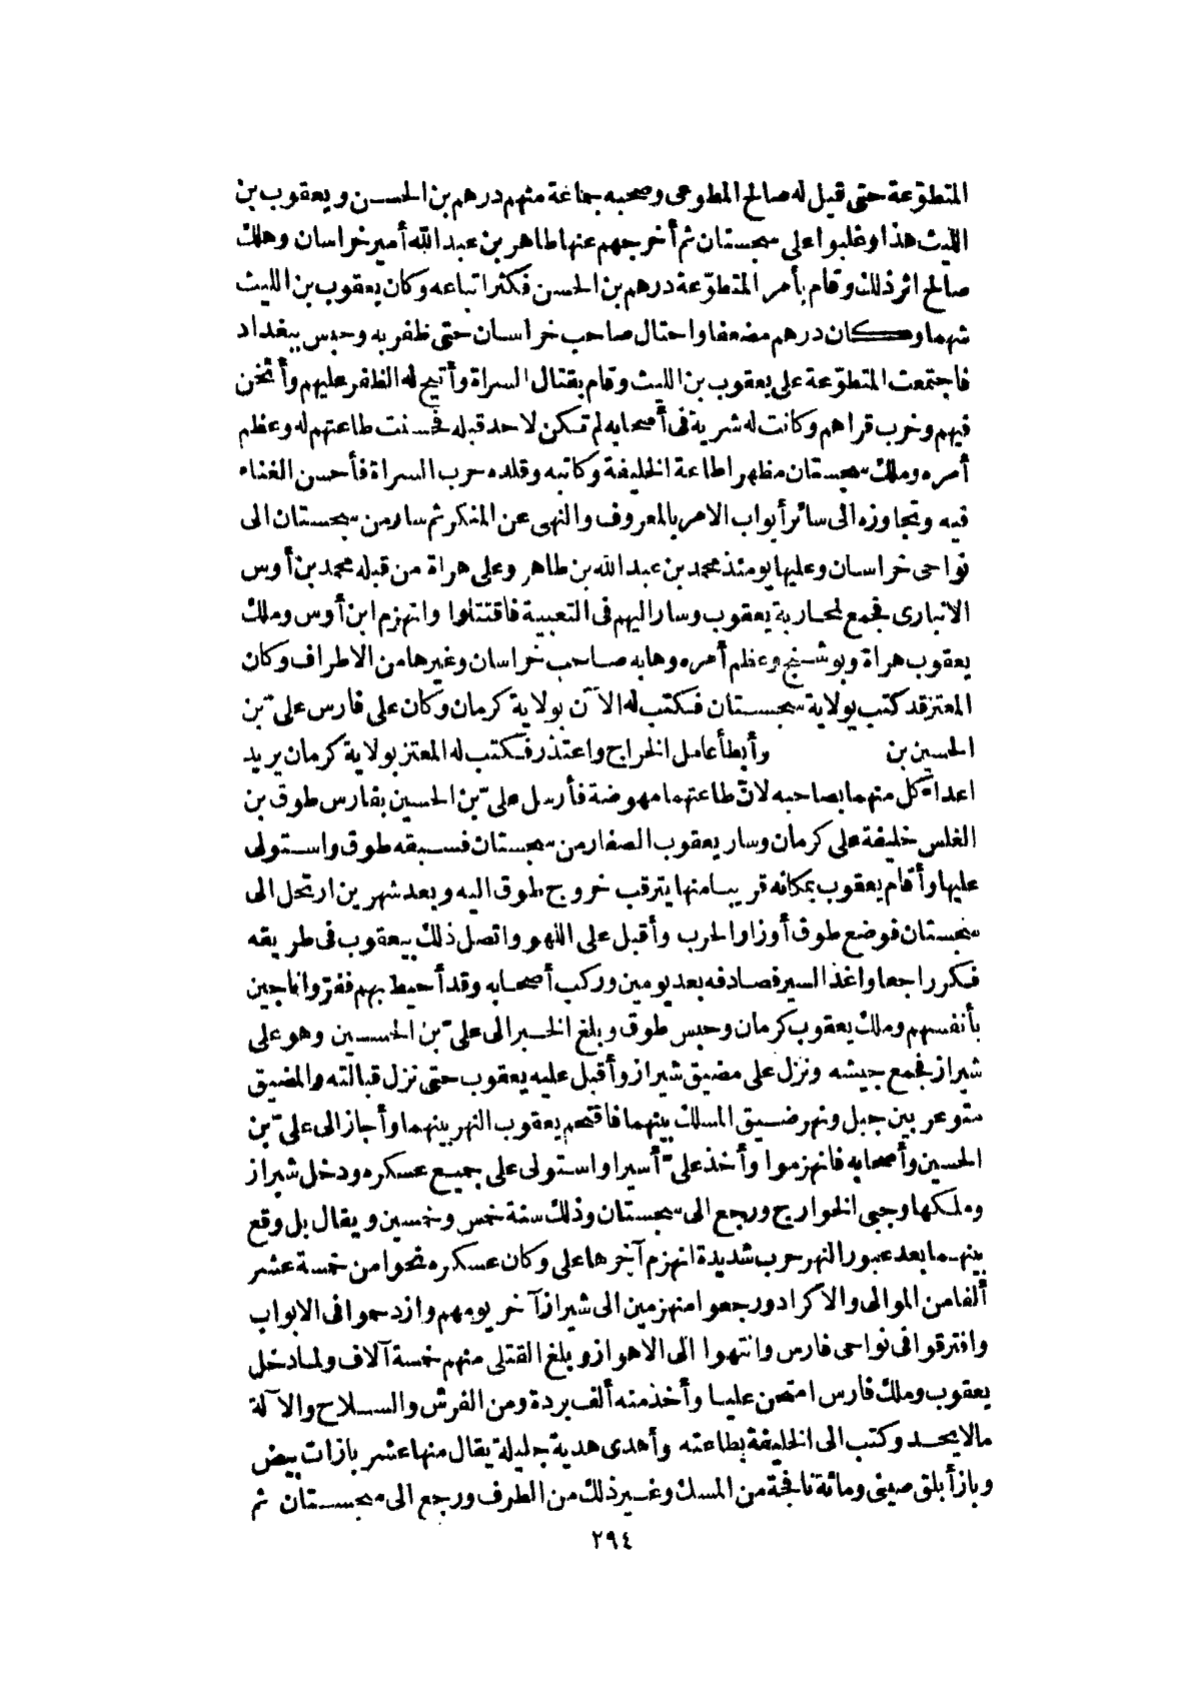 المتطوّعة حتى قيل له صالح المطوعى وصحبه جماعة منهم درهم بن الحسن ويعقوب بن
الليث هذا وغلبوا على سجستان ثم أخرجهم عنها طاهر بن عبد الله أمير خراسان وهلك
صالح اثر ذلك وقام بأمر المتطوّعة درهم بن الحسن فكثر اتباعه وكان يعقوب بن الليث
شهما وكان درهم مضعفا واحتال صاحب خراسان حتى ظفر به وحبس ببغداد
فاجتمعت المتطوّعة على يعقوب بن الليث وقام بقتال السراة وأتيح له الظفر عليهم وأثخن
فيهم وخرب قراهم وكانت له شرية فى أصحابه لم تكن لاحد قبله فحسنت طاعتهم له وعظم
أمره وملك سجستان مظهرا طاعة الخليفة وكاتبه وقلده حرب السراة فأحسن الغناء
فيه وتجاوزه الى سائر أبواب الامر بالمعروف والنهى عن المنكر ثم سار من سجستان الى
نواحى خراسان وعليها يومئذ محمد بن عبد الله بن طاهر وعلى هراة من قبله محمد بن أوس
الانبارى فجمع لمحاربة يعقوب وسار اليهم فى التعبية فاقتتلوا وانهزم ابن أوس وملك
يعقوب هراة وبوشنج وعظم أمره وهابه صاحب خراسان وغيرها من الاطراف وكان
المعتز قد كتب بولاية سجستان فكتب له الآن بولاية كرمان وكان على فارس علىّ بن
الحسين بن وأبطأ عامل الخراج واعتذر فكتب له المعتز بولاية كرمان يريد
اعداء كل منهما بصاحبه لانّ طاعتهما مهوضة فأرسل علىّ بن الحسين بفارس طوق بن
الغلس خليفة على كرمان وسار يعقوب الصفار من سجستان فسبقه طوق واستولى
عليها وأقام يعقوب بمكانه قريبا منها يترقب خروج طوق اليه وبعد شهرين ارتحل الى
سجستان فوضع طوق أوزار الحرب وأقبل على اللهو واتصل ذلك بيعقوب فى طريقه
فكر راجعا واغذ السير فصادفه بعد يومين وركب أصحابه وقد أحيط بهم ففرّوا ناجين
بأنفسهم وملك يعقوب كرمان وحبس طوق وبلغ الخبر الى علىّ بن الحسين وهو على
شيراز فجمع جيشه ونزل على مضيق شيراز وأقبل عليه يعقوب حتى نزل قبالته والمضيق
متوعر بين جبل ونهر ضيق المسلك بينهما فاقتحم يعقوب النهر بينهما وأجاز الى علىّ بن
الحسين وأصحابه فانهزموا وأخذ علىّ أسيرا واستولى على جميع عسكره ودخل شيراز
وملكها وجبى الخوارج ورجع الى سجستان وذلك سنة خمس وخمسين ويقال بل وقع
بينهما بعد عبور النهر حرب شديدة انهزم آخرها على وكان عسكره نحوا من خمسة عشر
ألفا من الموالى والاكراد ورجعوا منهزمين الى شيراز آخر يومهم وازدحموا فى الابواب
وافترقوا فى نواحى فارس وانتهوا الى الاهواز وبلغ القتلى منهم خمسة آلاف ولما دخل
يعقوب وملك فارس امتحن عليا وأخذ منه ألف بردة ومن الفرش والسلاح والآلة
مالا يحد وكتب الى الخليفة بطاعته وأهدى هدية جليلة يقال منها عشر بازات بيض
وباز أبلق صينى ومائة نافجة من المسك وغير ذلك من الطرف ورجع الى سجستان ثم
٢٩٤